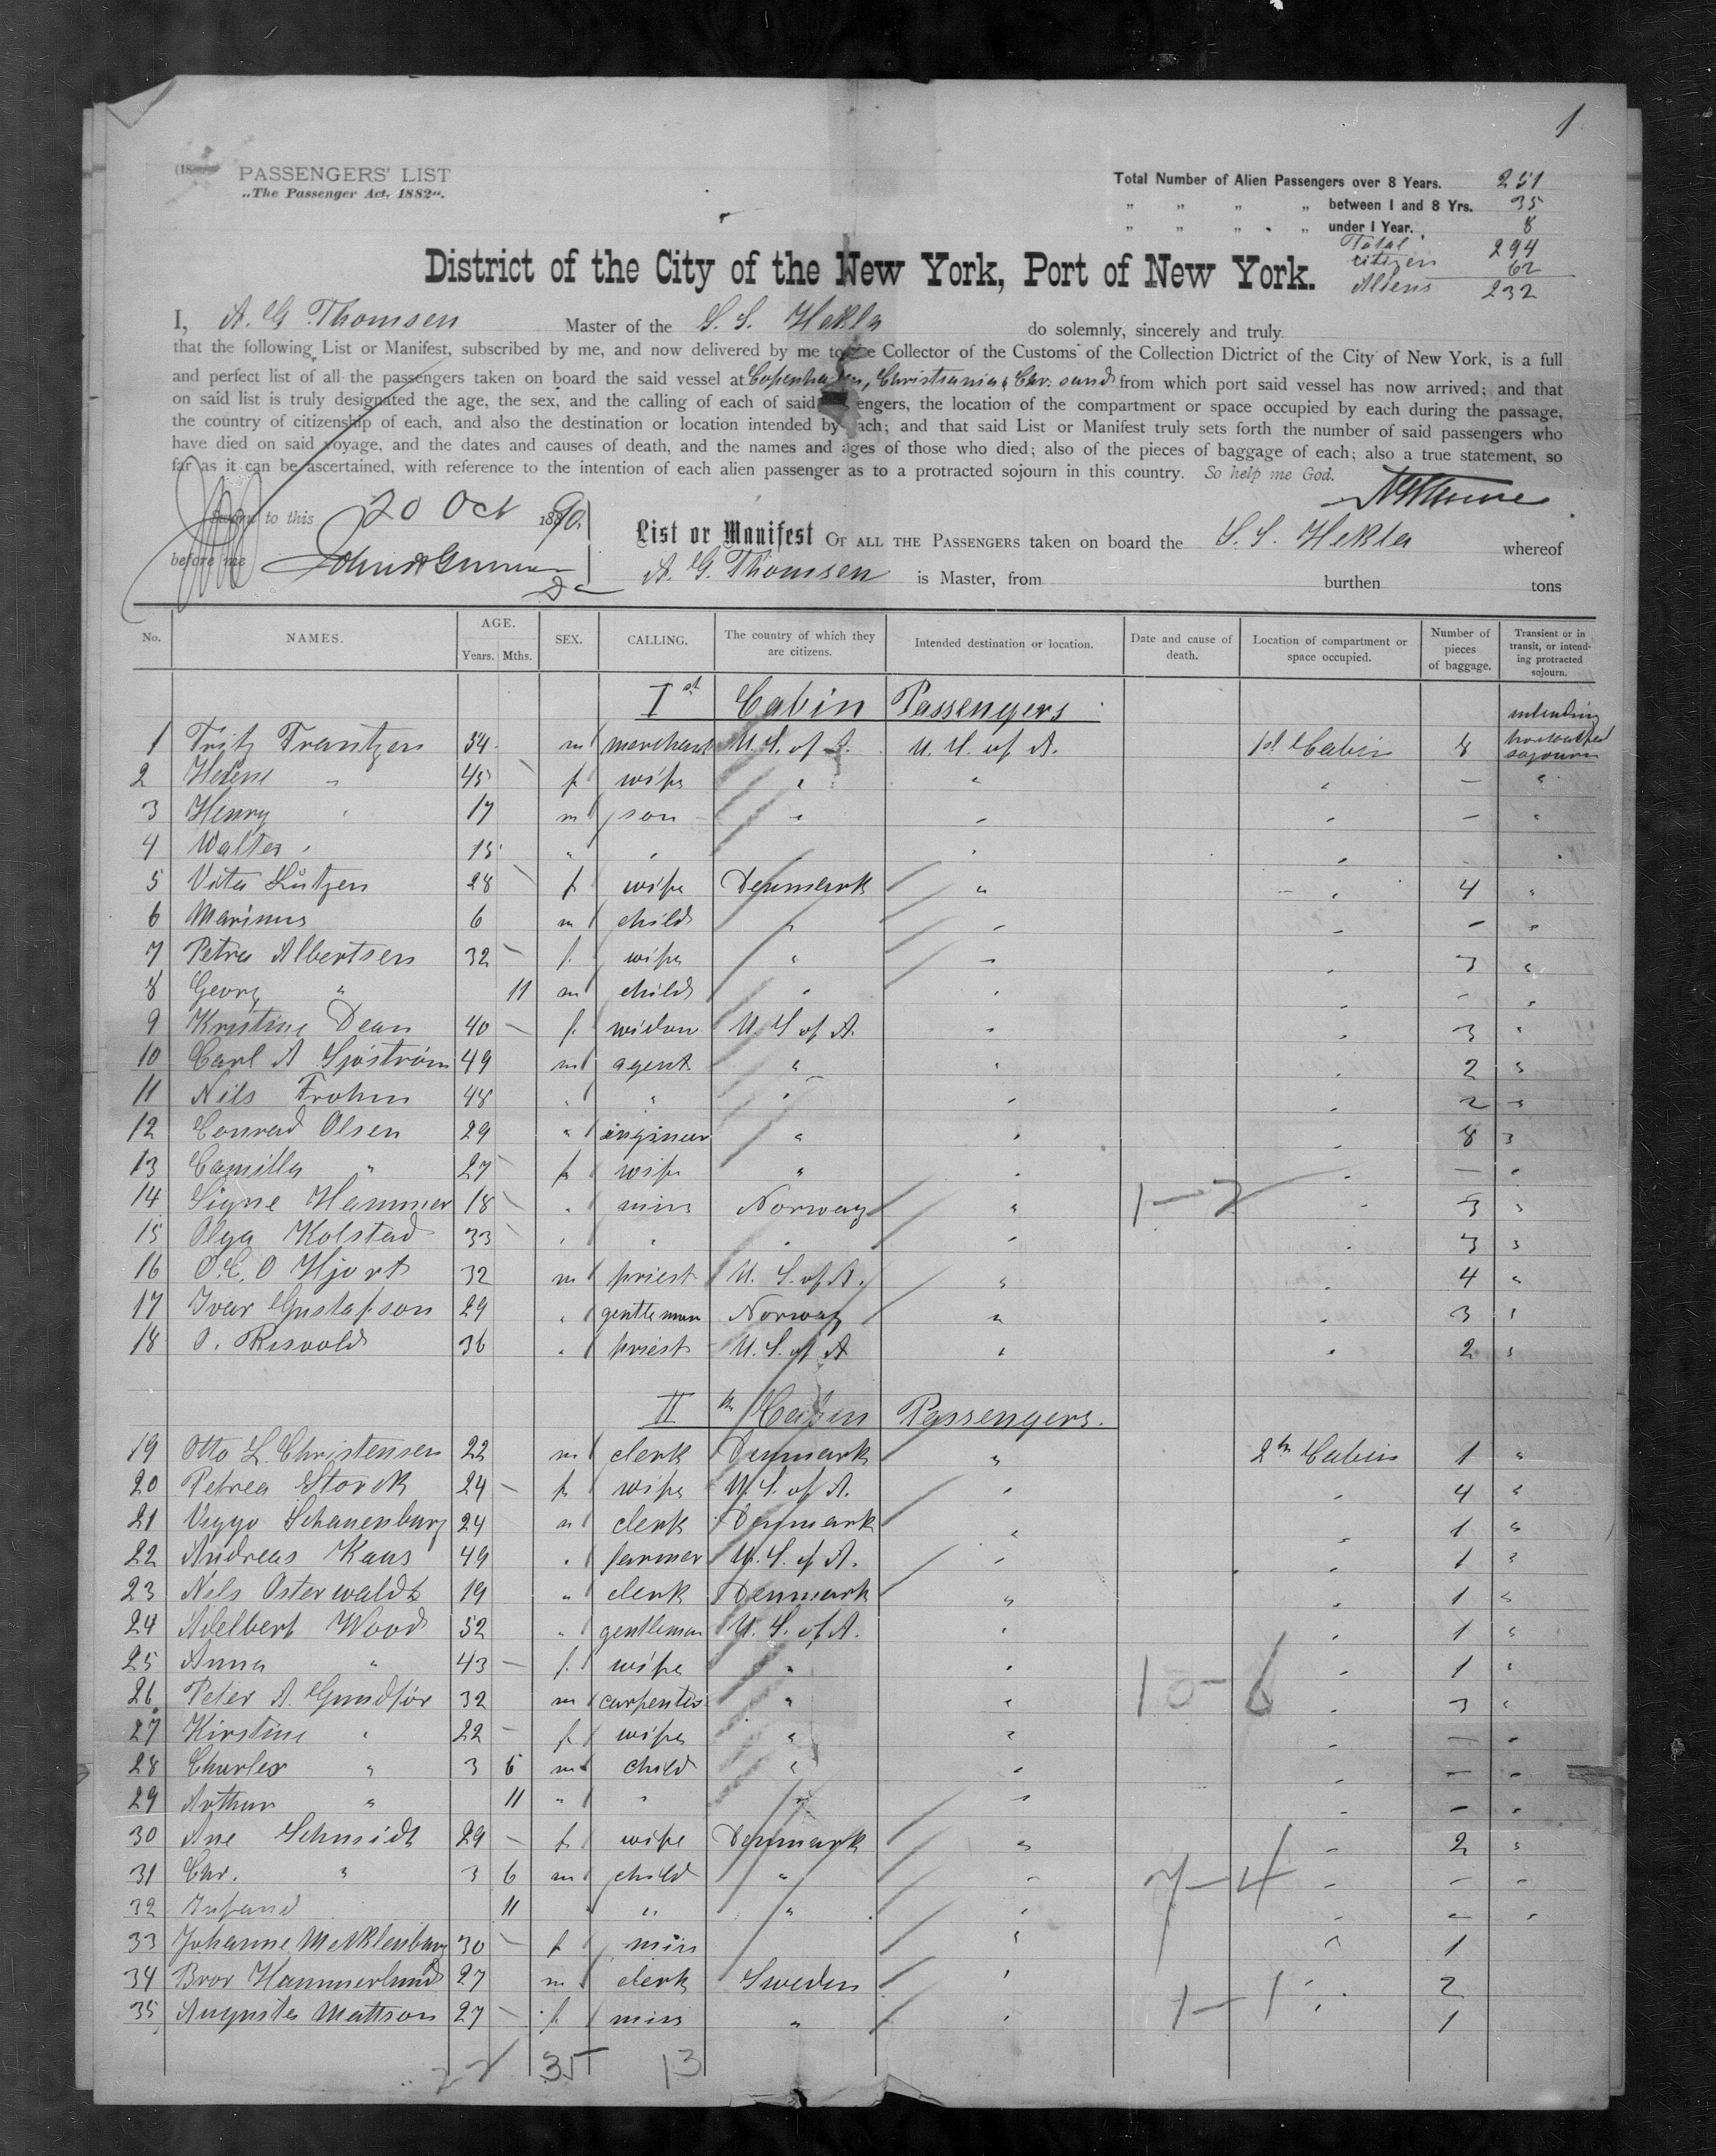 1
PASSENGERS' LIST
„The Passenger Act. 1882“.
Total Number of Alien Passengers over 8 Years. 251
„ „ „ „ between 1 and 8 Yrs. 35
„ „ „ „ under 1 Year. 8
Total 294
citizen 62
Aliens 232
District of the City of the New York, Port of New York.
I, A. G. Thomsen Master of the S. S. Hekla do solemnly, sincerely and truly
that the following List or Manifest, subscribed by me, and now delivered by me to the Collector of the Customs of the Collection Dictrict of the City of New York, is a full
and perfect list of all the passengers taken on board the said vessel at Copenhagen, Christiania & Chr. sand from which port said vessel has now arrived; and that
on said list is truly designated the age, the sex, and the calling of each of said engers, the location of the compartment or space occupied by each during the passage,
the country of citizenship of each, and also the destination or location intended by each; and that said List or Manifest truly sets forth the number of said passengers who
have died on said voyage, and the dates and causes of death, and the names and ages of those who died; also of the pieces of baggage of each; also a true statement, so
far as it can be ascertained, with reference to the intention of each alien passenger as to a protracted sojourn in this country. So help me God.
Sworn to this 20 Oct 1890
before me
List or Manifest OF ALL THE PASSENGERS taken on board the S. S. Hekla whereof
A. G. Thomsen is Master, from burthen tons
No. NAMES. AGE. Years. Mths. SEX. CALLING. The country of which they are citizens. Intended destination or location. Date and cause of death. Location of compartment or space occupied. Number of pieces of baggage. Transient or in transit, or intending protracted sojourn.
Ist Cabin Passengers
1 Fritz Frantzen 54 m merchant U. S. of A. U. S. of A. 1st Cabin 8 intending protracted sojourn
2 Helene " 45 f wife " " " — "
3 Henry " 17 m son " " " — "
4 Walter " 15 " " " " " "
5 Vita Lützen 28 f wife Denmark " " 4 "
6 Marinus 6 m child " " " — "
7 Petra Albertsen 32 — f. wife " " " 3 "
8 Georg " 11 m child " " " — "
9 Kristine Dean 40 — f. widow U. S. of A. " " 3 "
10 Carl A Sjöström 49 m agent " " " 2 "
11 Nils Frohm 48 " " " " " 2 "
12 Conrad Olsen 29 " ingineer " " " 8 "
13 Camilla " 27 f wife " " " — "
14 Signe Hammer 18 " miss Norway " " 3 "
15 Olga Kolstad 33 " " " " " 3 "
16 O. C. O Hjort 32 m priest U. S. of A. " " 4 "
17 Ivar Gustafson 29 " gentleman Norway " " 3 "
18 O. Risvold 36 " priest U. S. of A " " 2 "
1—2
II Cabin Passengers.
19 Otto L. Christensen 22 m clerk Denmark " 2 Cabin 1 "
20 Petrea Storck 24 — f. wife U. S. of A. " " 4 "
21 Viggo Schauenburg 24 m clerk Denmark " " 1 "
22 Andreas Kaas 49 " farmer U. S. of A. " " 1 "
23 Nels Osterwaldt 19 " clerk Denmark " " 1 "
24 Adelbert Wood 52 " gentleman U. S. of A. " " 1 "
25 Anna " 43 — f. wife " " " 1 "
26 Peter A. 32 m carpenter " " " 3 "
10—6
27 Kirstine " 22 — f wife " " " — "
28 Charles " 3 6 m child " " " — "
29 Arthur " 11 " " " " " — "
30 Ane Schmidt 29 — f. wife Denmark " " 2 "
31 Chr. " 3 6 m child " " " — "
7—4
32 Infand 11 " " " " " — "
33 Johanne Mecklenburg 30 — f miss " " 1
34 Bror Hammerlund 27 m clerk Sweden " " 2
35 Augusta Mattson 27 — f. miss " " " 1
1—1
22 35 13